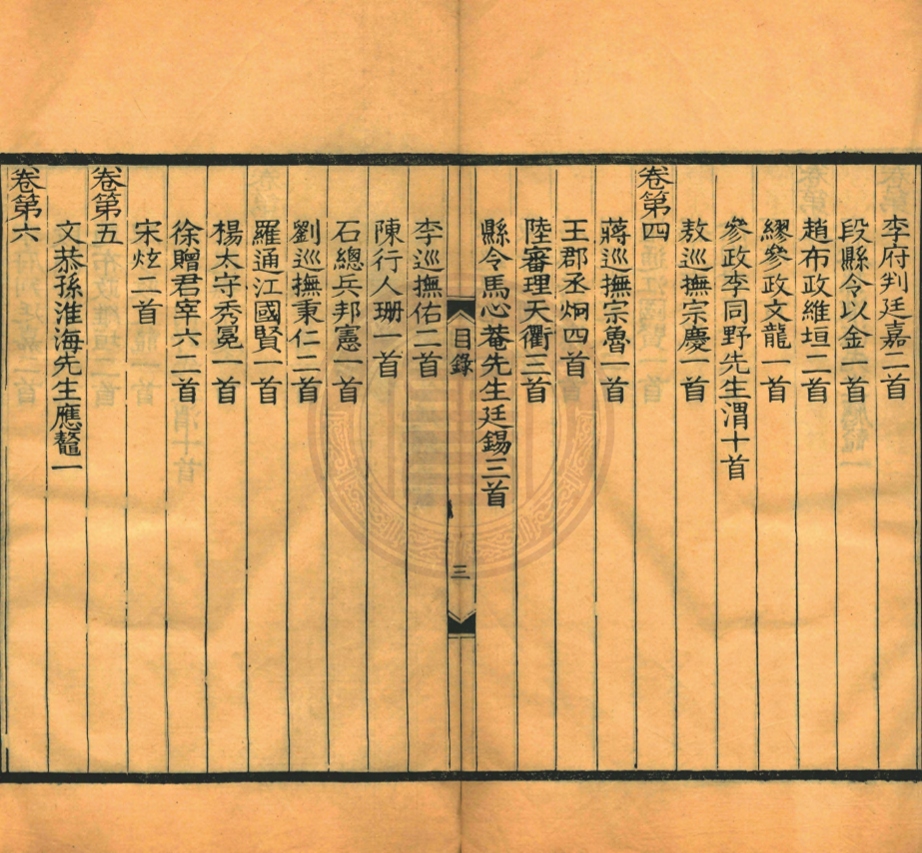 李府判廷嘉二首
段縣令以金一首
趙布政維垣二首
繆參政文龍一首
參政李同野先生渭十首
敖巡撫宗慶一首
卷第四
蔣巡撫宗魯一首
王郡丞炯四首
陸審理天衢三首
縣令馬心菴先生廷錫三首
目錄
三
李巡撫佑二首
陳行人珊一首
石總兵邦憲一首
劉巡撫秉仁二首
羅通江國賢一首
楊太守秀冕一首
徐贈君宰六二首
宋炫二首
卷第五
文恭孫淮海先生應鼇一
卷第六